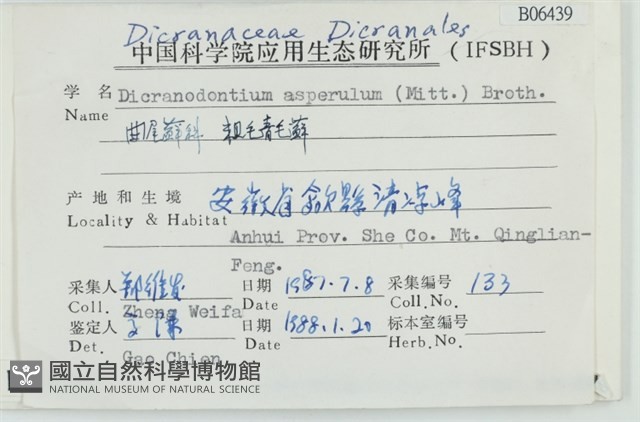 B06439
Dicranaceae Dicranales
中国科学院应用生态研究所 (IFSBH)
学名 Dicranodontium asperulum (Mitt.) Broth.
Name
曲尾藓科 粗毛青毛藓
产地和生境 安徽省歙县清凉峰
Locality & Habitat Anhui Prov. She Co. Mt. Qinglian-
Feng.
采集人 郑维发 日期 1987.7.8 采集编号 133
Coll. Zheng Weifa Date Coll.No.
鉴定人 日期 1988.1.20 标本室编号
Det. Gao Chien Date Herb.No.
國立自然科學博物館
NATIONAL MUSEUM OF NATURAL SCIENCE